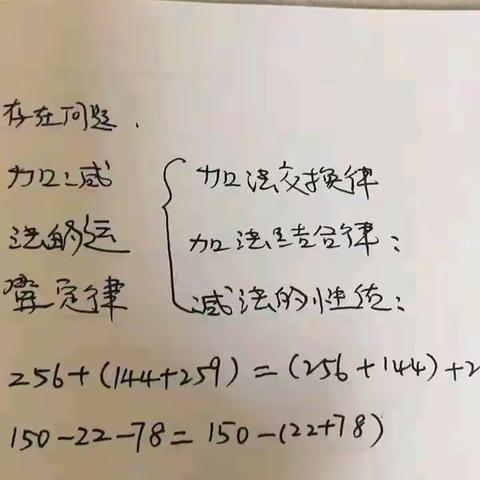 存在问题.
加、减
法的运
算定律
加法交换律
加法结合律：
减法的性质：
256+(144+259)=(256+144)+2
150-22-78=150-(22+78)